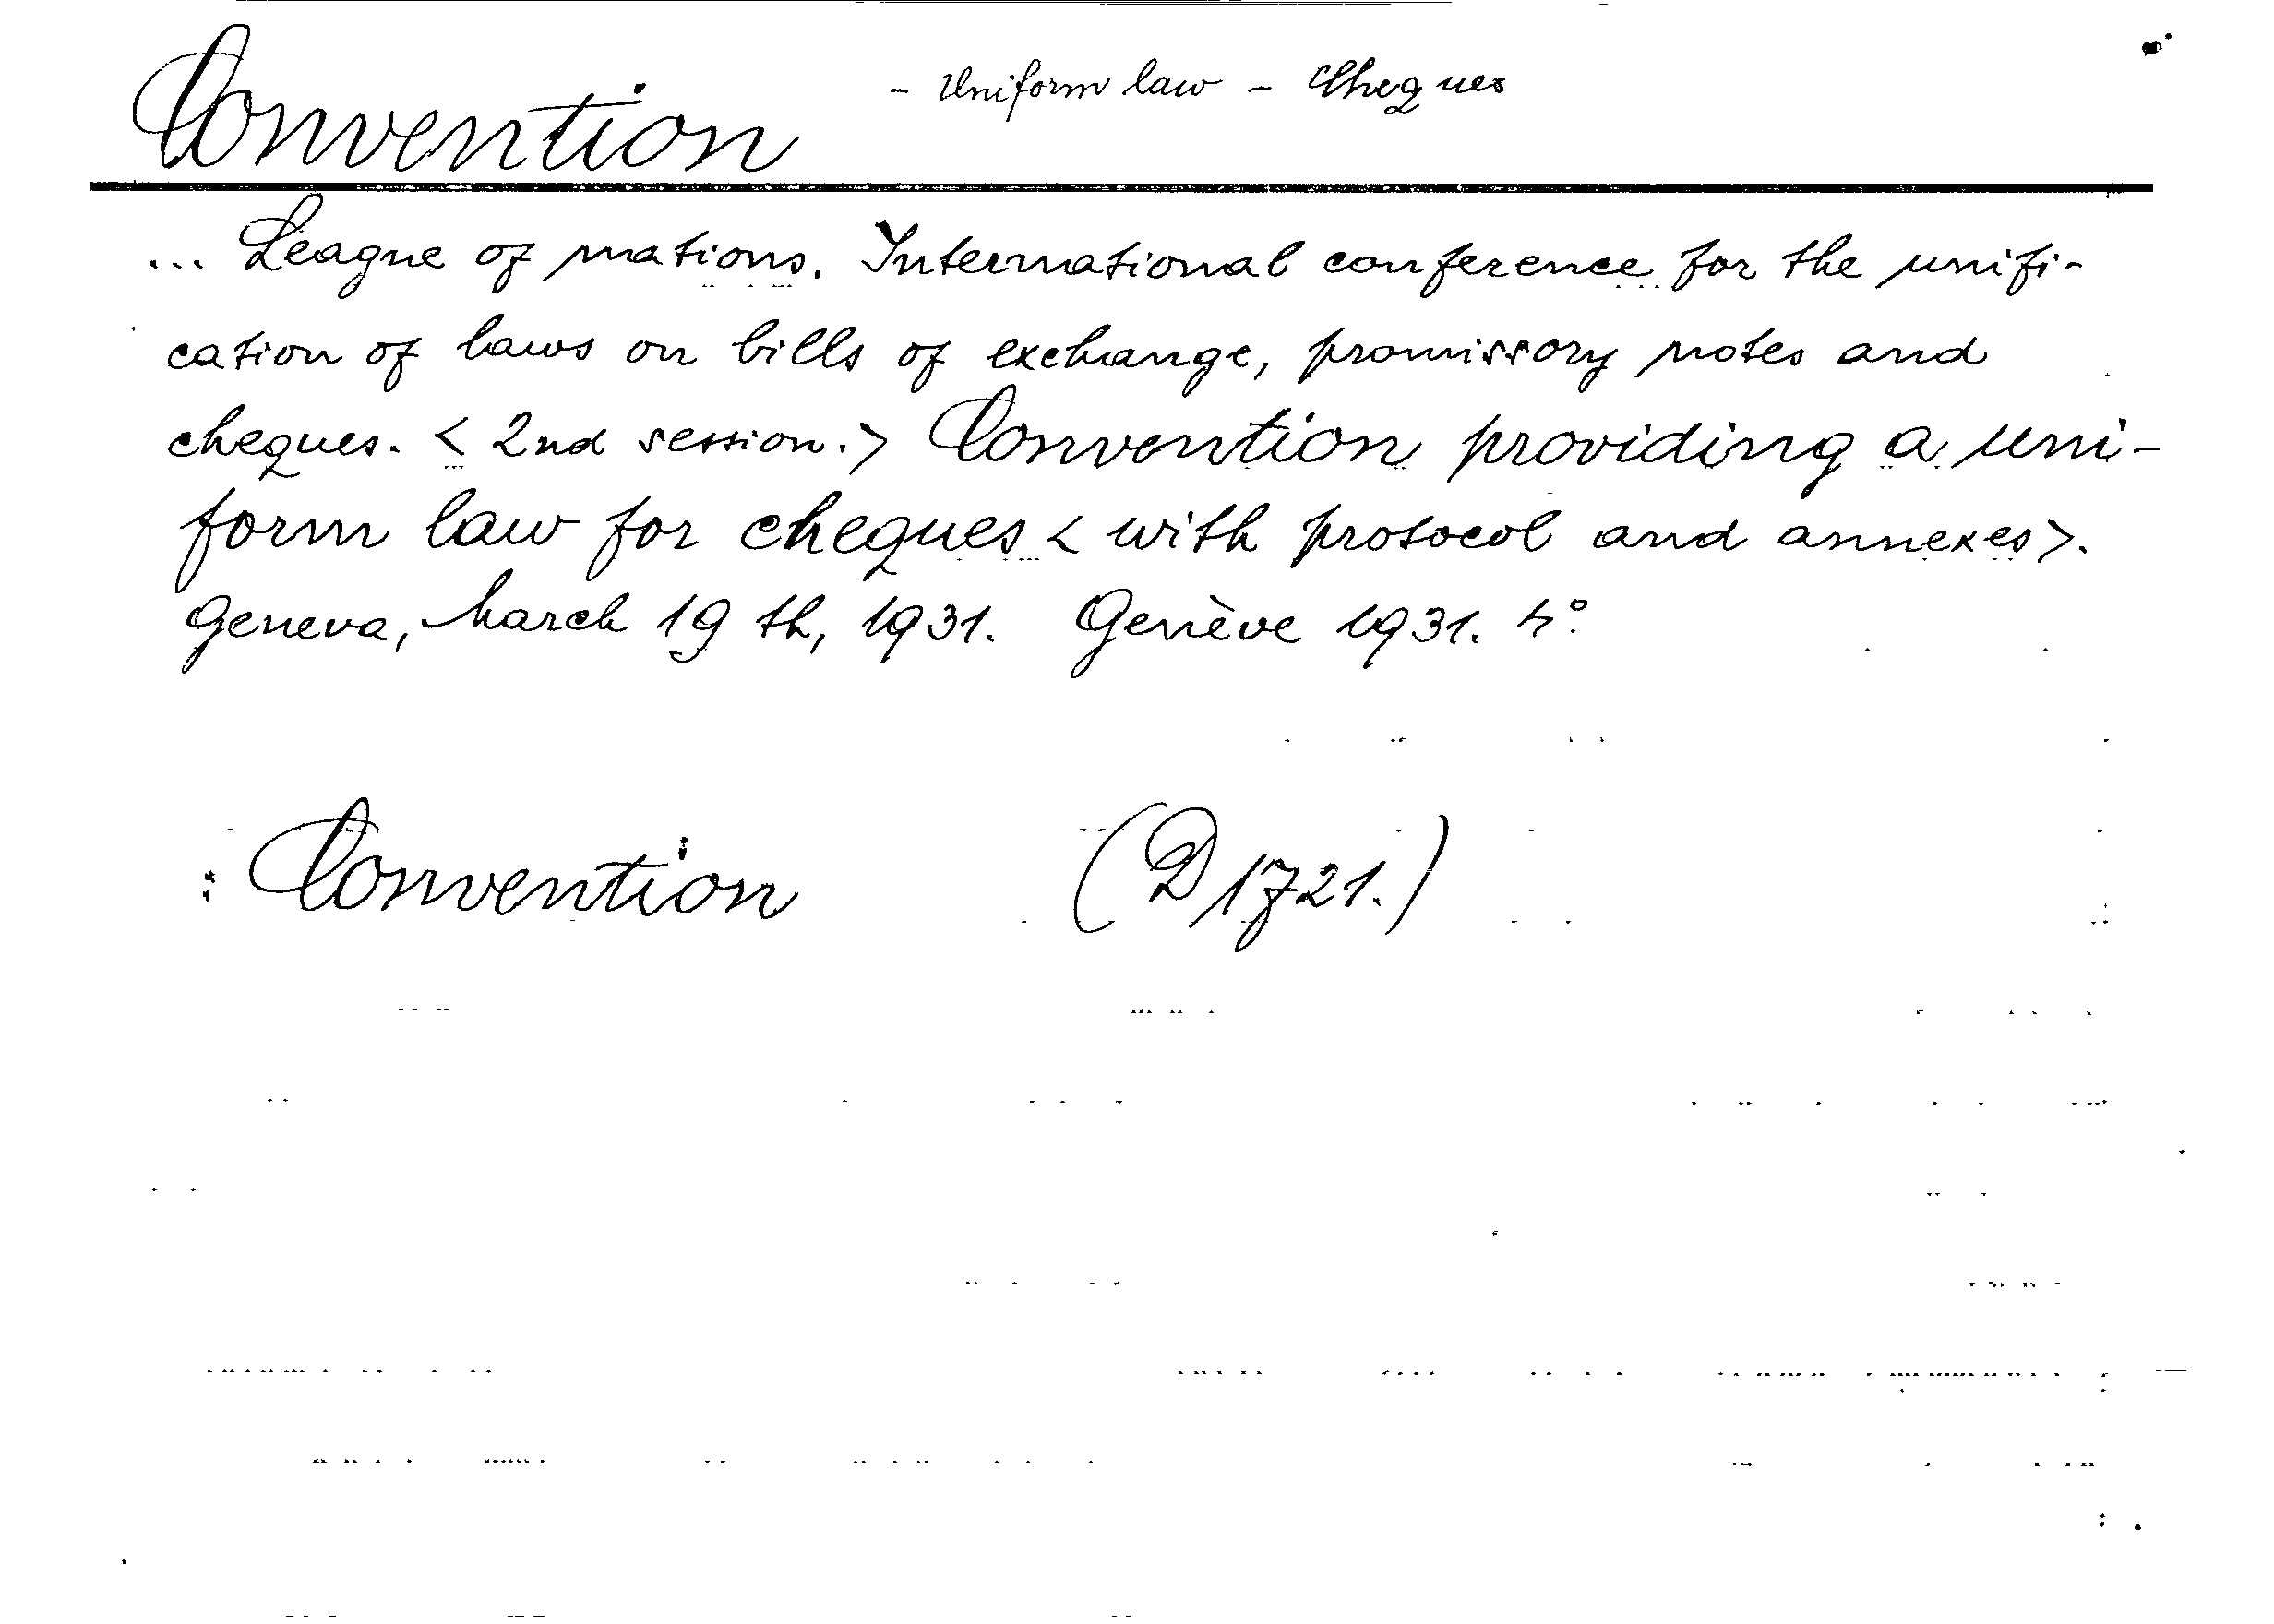 Convention - Uniform law - Cheques
... League of nations. International conference for the unifi-
cation of laws on bills of exchange, promissory notes and
cheques. < 2nd session.> Convention providing a uni-
form law for cheques < with protocol and annexes>.
Geneva, March 19 th, 1931. Genève 1931. 4°
: Convention (D 1721.)